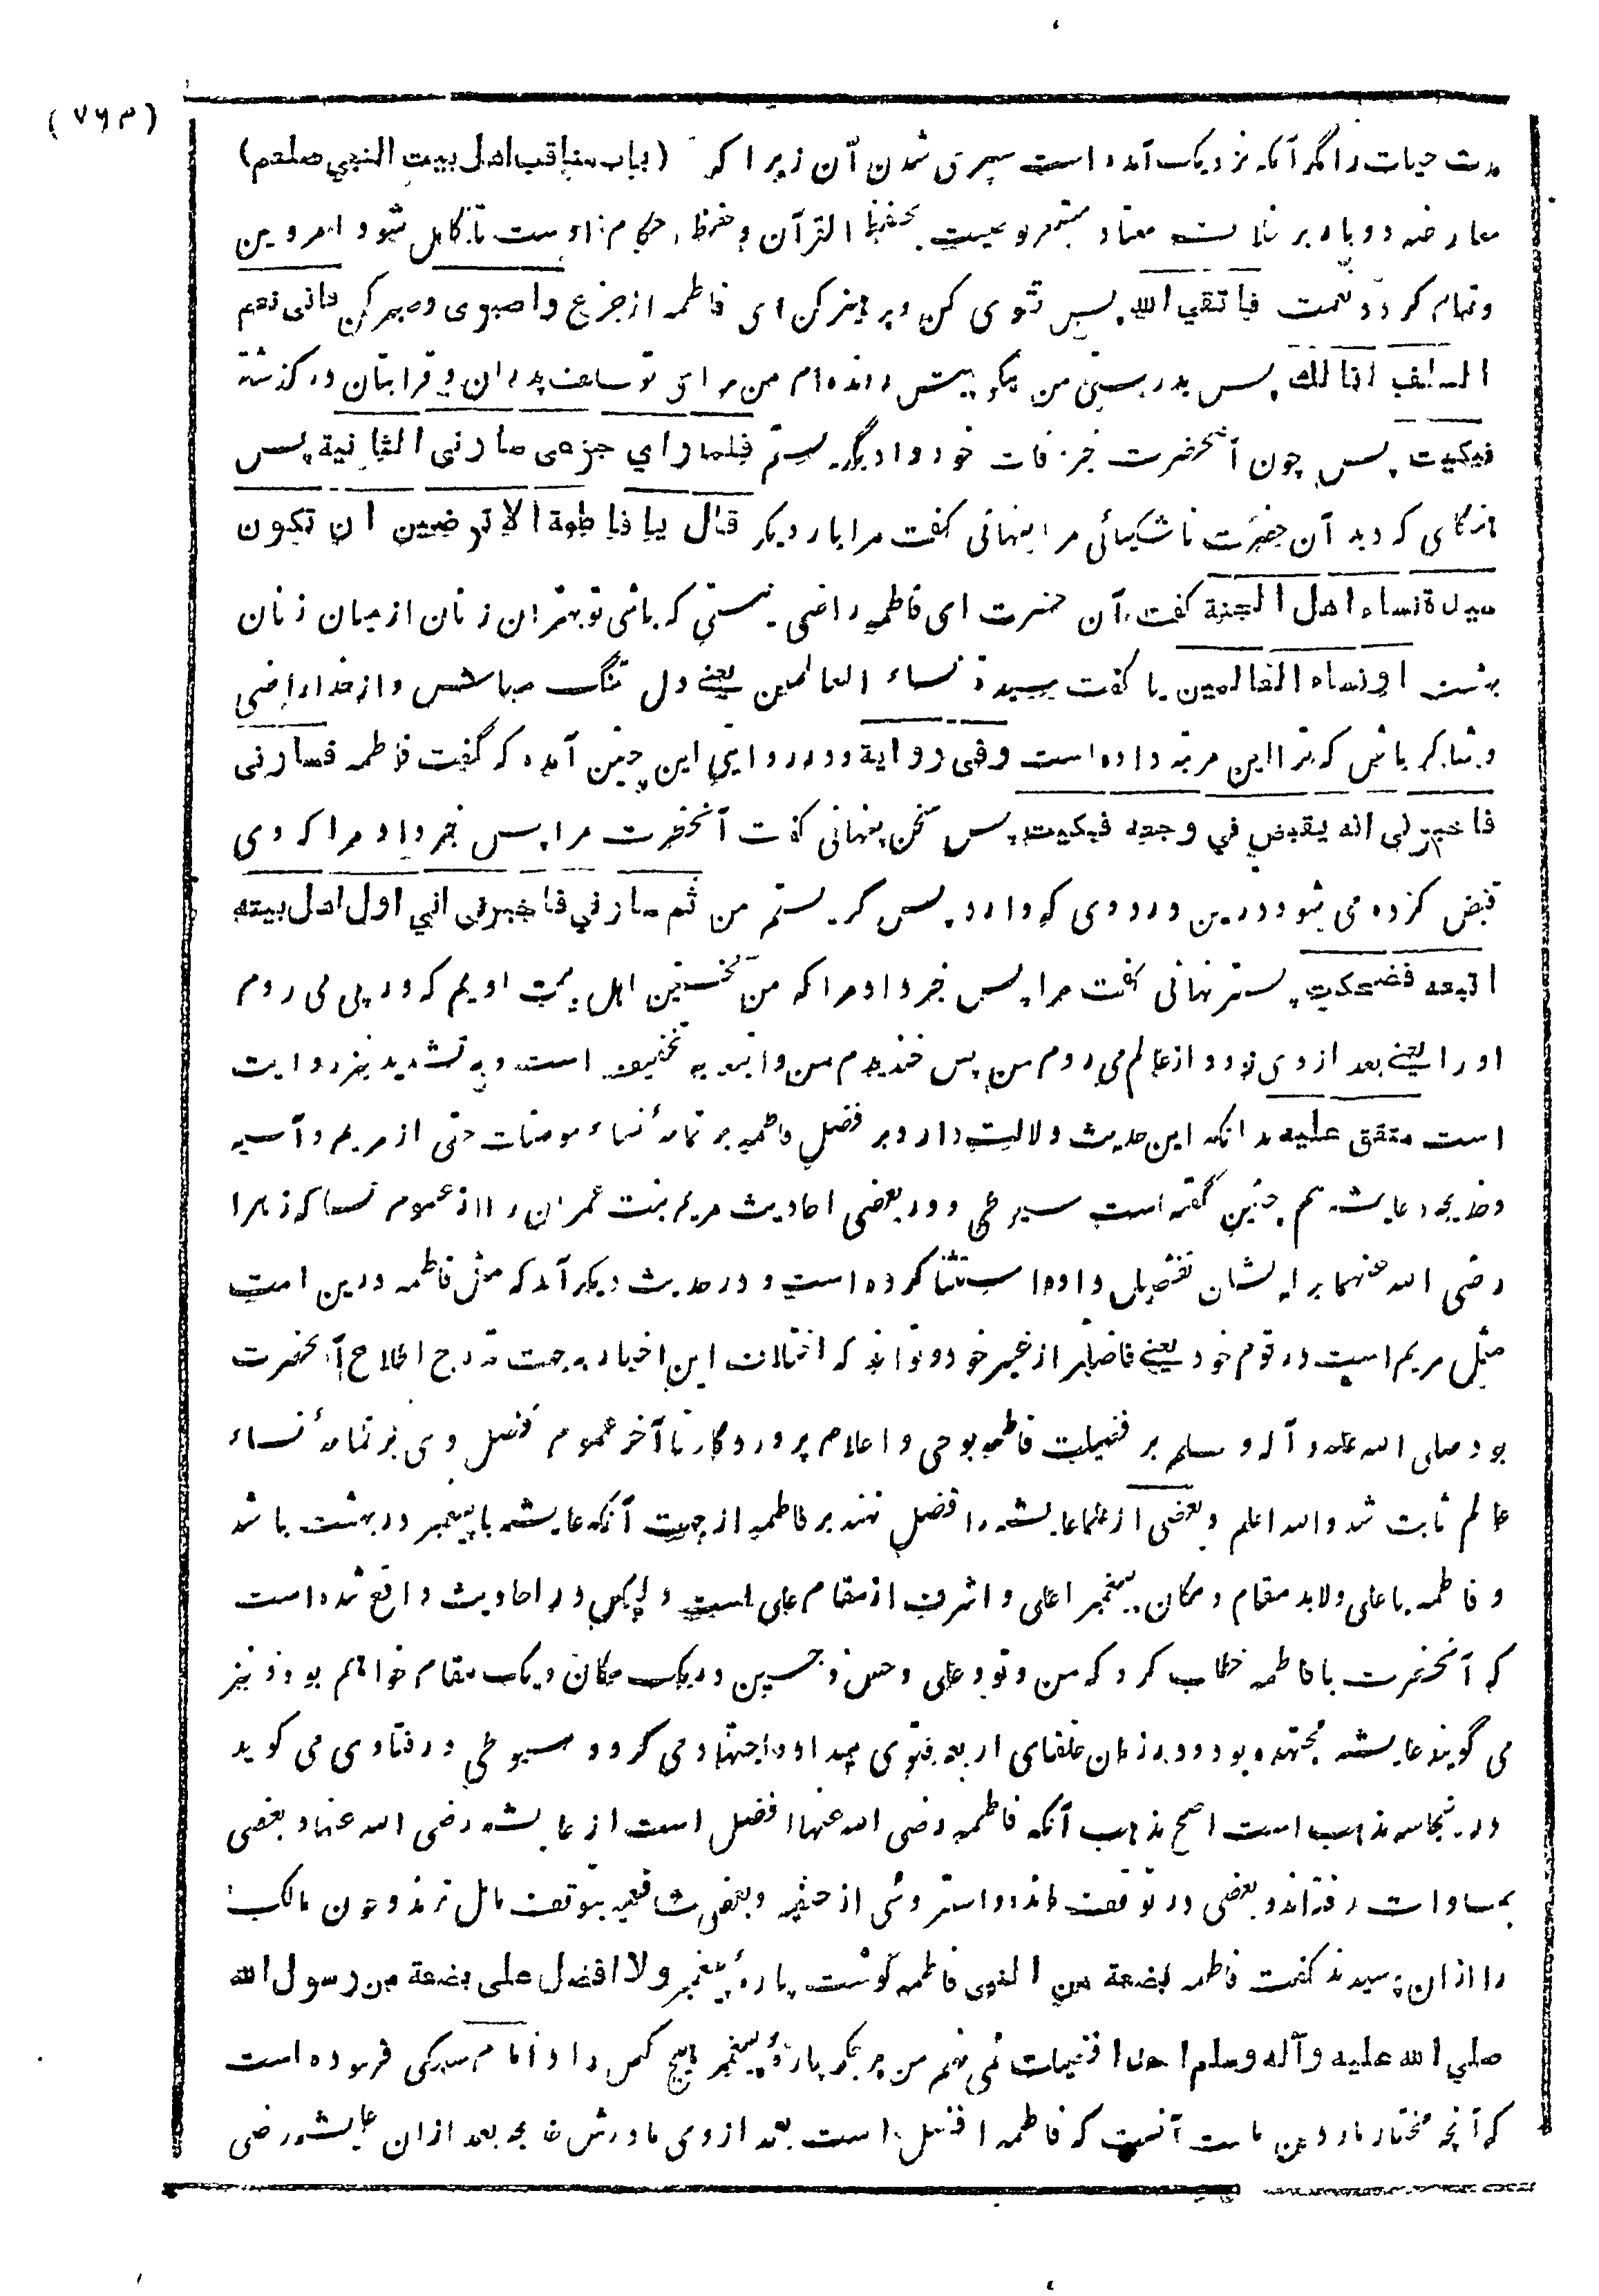 (۷۶۳)
مدت حیات را مگر آنکه نزدیک آمده است سپری شدن آن زیرا که (باب مناقب اهل بیت النبی صلعم)
معارضه دوبار بر خلاف معتاد مشعر وصیت بحفظ القرآن و حفظ احکام اوست تا کامل شود امر دین
و تمام گردد نعمت فاتقي الله پس تقوی کن و پرهیز کن ای فاطمه از جزع واصبري و صبر کن فانی نعم
السلف انا لك پس بدرستی من نیکو پیش رونده‌ام من مر ترا سلف پدران و قرابتان درگذشته
فبکیت پس چون آنحضرت خبر وفات خود داد بگریستم فلما رای جزعی سارنی الثانیة پس
هرگاهی که دید آن حضرت ناشکیبائی مرا پنهانی گفت مرا بار دیگر قال یا فاطمة الا ترضین ان تکون
سیدة نساء اهل الجنة گفت آن حضرت ای فاطمه راضی نیستی که باشی تو بهتر ان زنان از میان زنان
بهشت او نساء العالمین یا گفت سیدة نساء العالمین یعنی دل تنگ مباش و از خدا راضی
و شاکر باش که ترا این مرتبه داده است وفی روایة و در روایتی این چنین آمده که گفت فاطمه فسارنی
فاخبرنی انه یقبض في وجعه فبکیت پس سخن پنهانی گفت آنحضرت مرا پس خبر داد مرا که وی
قبض کرده می شود درین دردی که دارد پس گریستم من ثم سارني فاخبرنی اني اول اهل بیته
اتبعه فضحکت پستر نهانی گفت مرا پس خبر داد مرا که من نخستین اهل بیت اویم که در پی می روم
او را یعنی بعد از وی زود از عالم می روم من پس خندیدم من و اتبعه به تخفیف است و به تشدید نیز روایت
است متفق علیه بدانکه این حدیث دلالت دارد بر فضل فاطمه بر تمامهٔ نساء مومنات حتی از مریم و آسیه
و خدیجه و عایشه هم چنین گفته است سیوطی و در بعضی احادیث مریم بنت عمران را از عموم نسا که زهرا
رضی الله عنهما بر ایشان تفضیل داده استثنا کرده است و در حدیث دیگر آمد که مثل فاطمه درین امت
مثل مریم است در قوم خود یعنی فاضلتر از غیر خود و تواند که اختلاف این اخبار به جهت تدرج اطلاع آنحضرت
بود صلی الله علیه و آله و سلم بر فضیلت فاطمه بوحی و اعلام پروردگار تا آخر عموم فضل وی بر تمامهٔ نساء
عالم ثابت شد والله اعلم و بعضی از علما عایشه را افضل نهند بر فاطمه از جهت آنکه عایشه با پیغمبر در بهشت باشد
و فاطمه با علی ولابد مقام و مکان پیغمبر اعلی و اشرف از مقام علی است ولیکن در احادیث واقع شده است
که آنحضرت با فاطمه خطاب کرد که من و تو و علی و حسن و حسین در یک مکان و یک مقام خواهم بود و نیز
می گویند عایشه مجتهده بود و در زمان خلفای اربعه فتوی میداد و اجتهاد می کرد و سیوطی در فتاوی می گوید
در اینجا سه مذهب است اصح مذهب آنکه فاطمه رضی الله عنها افضل است از عایشه رضی الله عنها و بعضی
بمساوات رفته‌اند و بعضی در توقف مانده و استروشنی از حنفیه و بعضی شافعیه بتوقف مائل ترند و چون مالک
را از ان پرسیدند گفت فاطمه بضعة من النبی فاطمه گوشت پارهٔ پیغمبر ولا افضل علی بضعة من رسول الله
صلي الله علیه وآله وسلم احدا فضیلت نمی نهم من بر جگر پارهٔ پیغمبر هیچ کس را و امام سبکی فرموده است
که آنچه مختار ما و دین ماست آنست که فاطمه افضل است بعد از وی مادرش خدیجه بعد از ان عایشه رضی